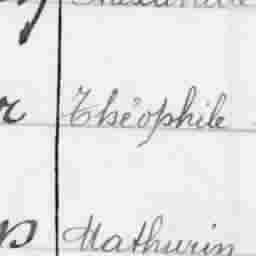 Théophile
Mathurin